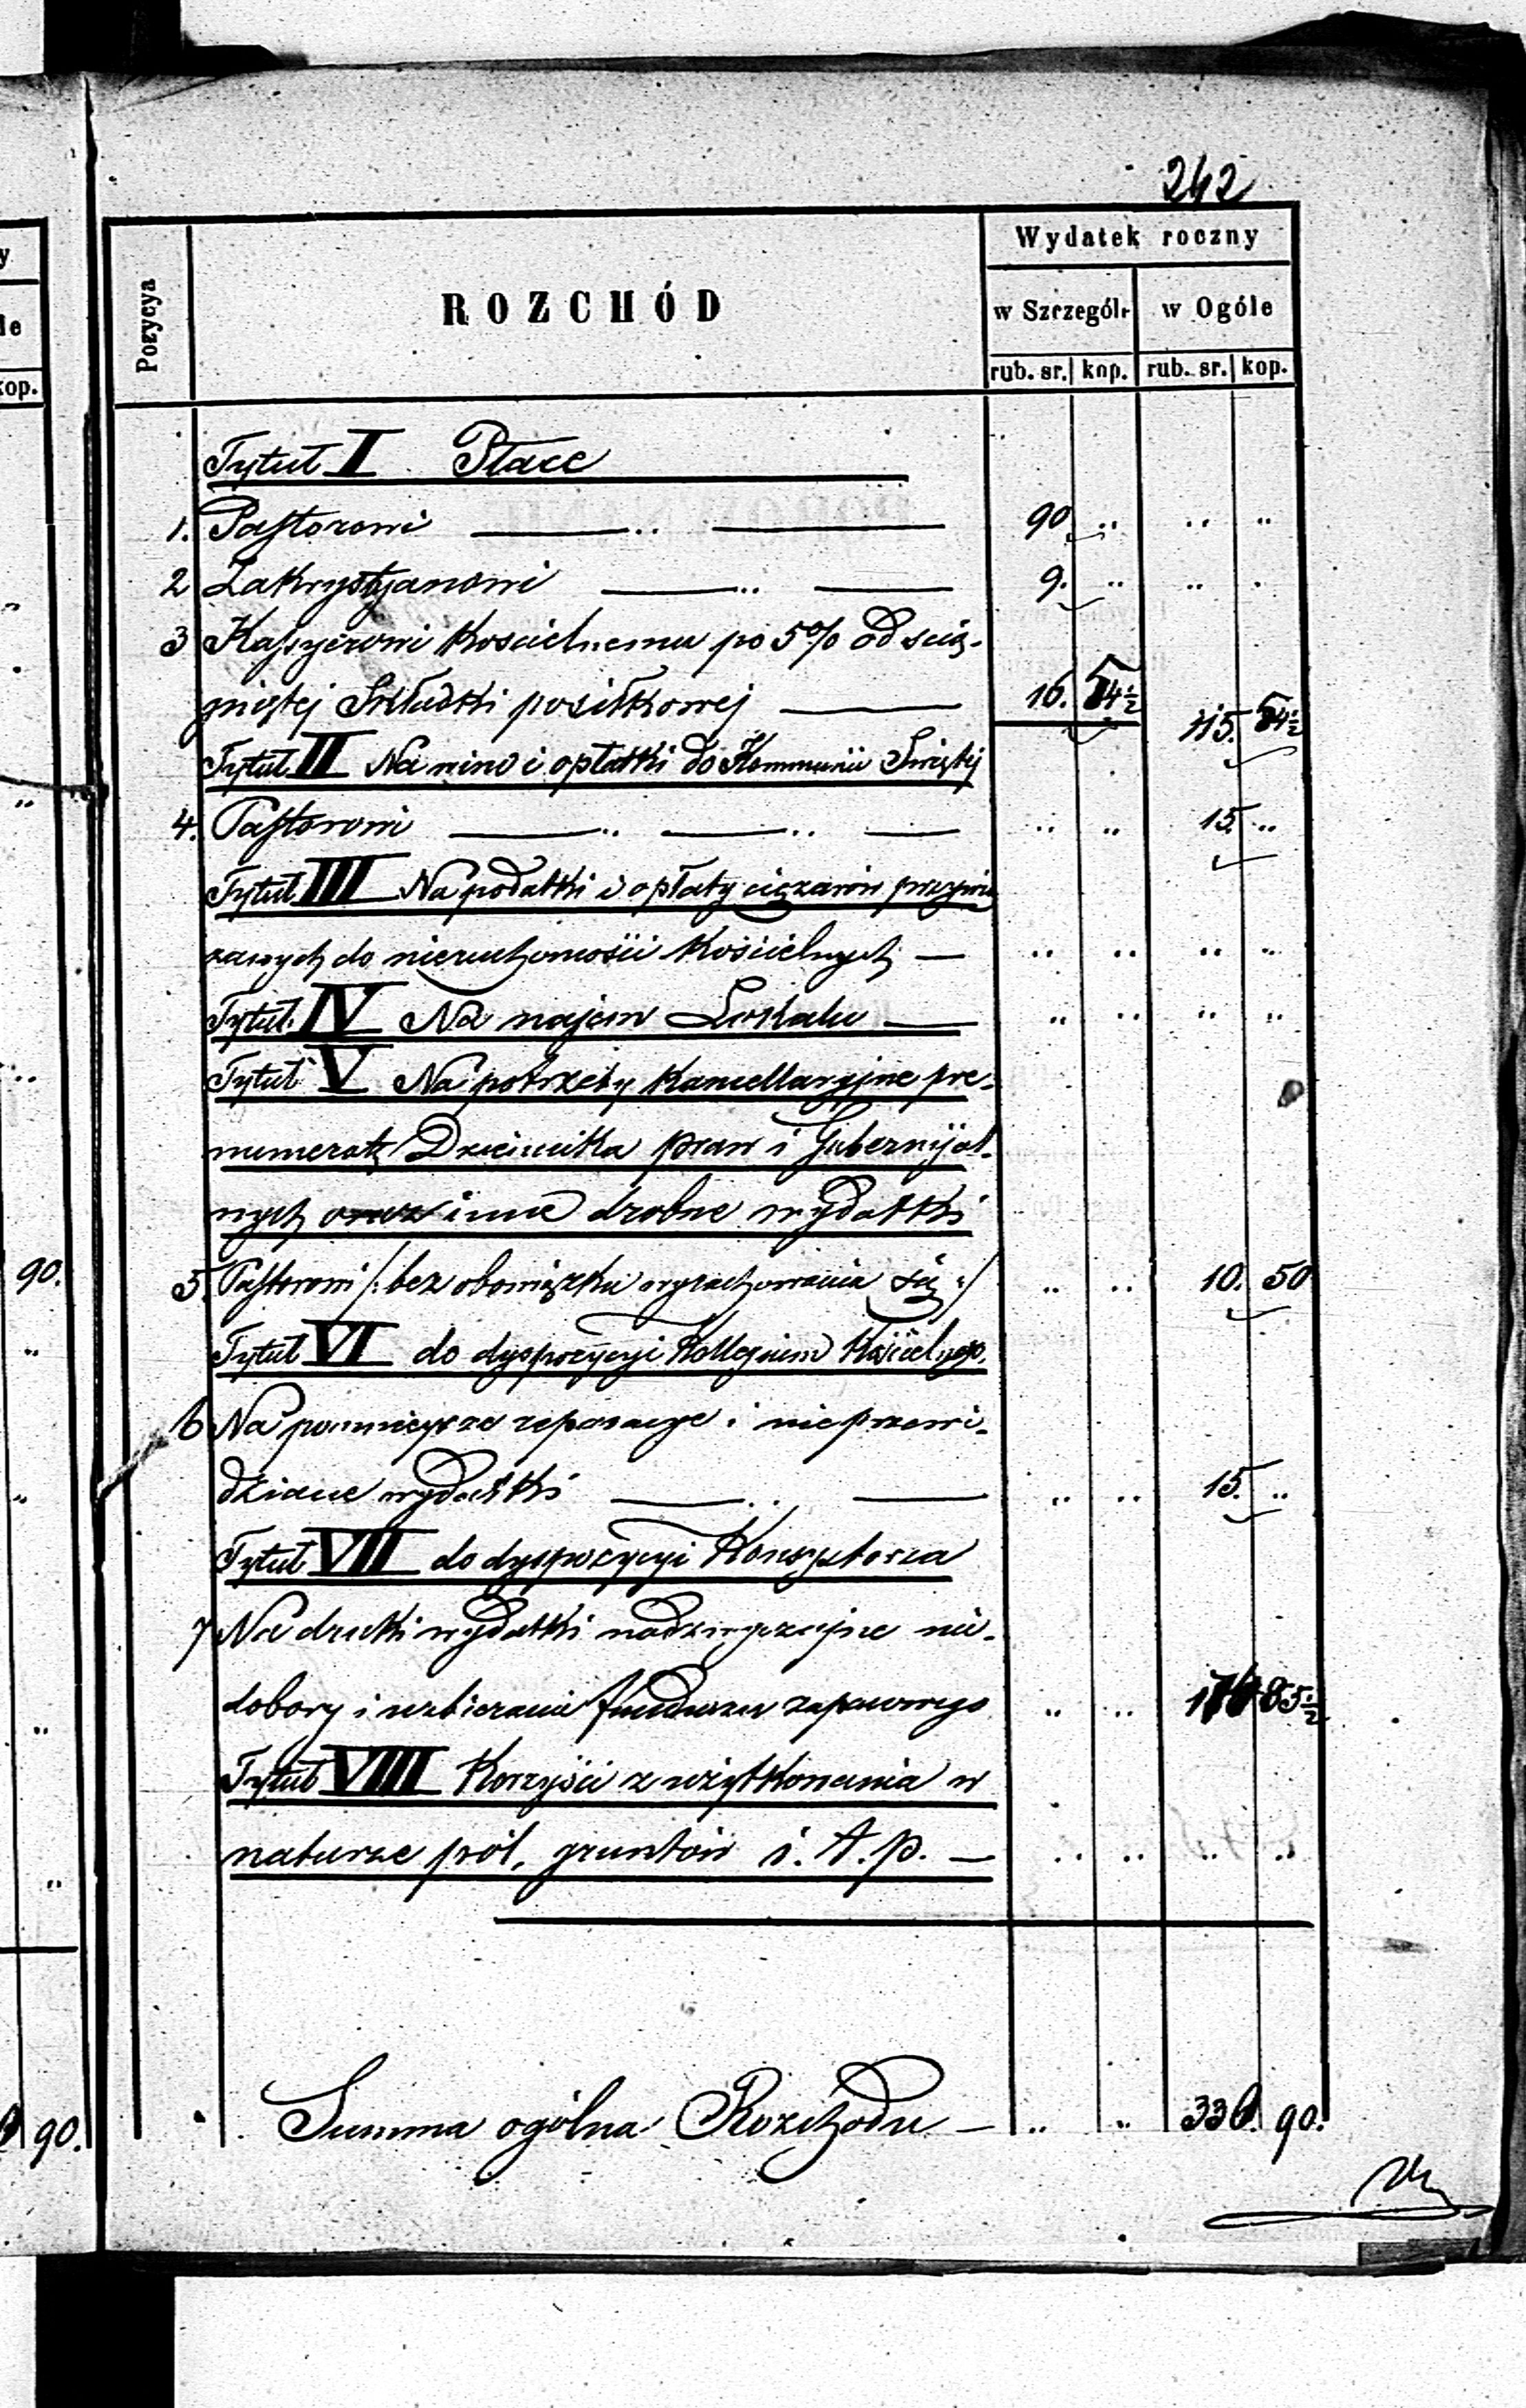 242
Pozycya
ROZCHÓD
Wydatek roczny
w Szczegól. w Ogóle
rub. sr. kop. rub. sr. kop.
Tytuł I Płace
1. Pastorowi 90 „ „ „
2 Zakrystyanowi 9. „ „
3 Kassyerowi Kościelnemu po 5% od scią-
gniętej Składki posiłkowej 16. 54½ 115. 54½
Tytuł II Na wino i opłatki do Kommunii Świętej
4. Pastorowi „ „ 15. „
Tytuł III Na podatki i opłaty ciężarów przywią
zanych do nieruchomości Kościelnych — „ „ „ „
Tytuł IV Na najem Lokalu — „ „ „ „
Tytuł V Na potrzeby Kancellaryjne pre-
numeratę Dziennika praw i Gubernijal-
nych oraz inne drobne wydatki
5. Pastorowi /: bez obowiązku wyrachowania się :/ „ „ 10. 50
Tytuł VI do dyspozycyi Kollegium Kościelnego.
6 Na pomniejsze reparacye i nieprzewi-
dziane wydatki „ „ 15. „
Tytuł VII do dyspozycyi Konsystorza
7 Na druki wydatki nadzwyczajne nie-
dobory i uzbieranie funduszu zapasowego „ „ 85½
Tytuł VIII Korzyści z użytkowania w
naturze pól, gruntów i. t. p. — „ „ „ „
Summa ogólna Rozchodu — „ „ 336. 90.
kop.
90.
90.